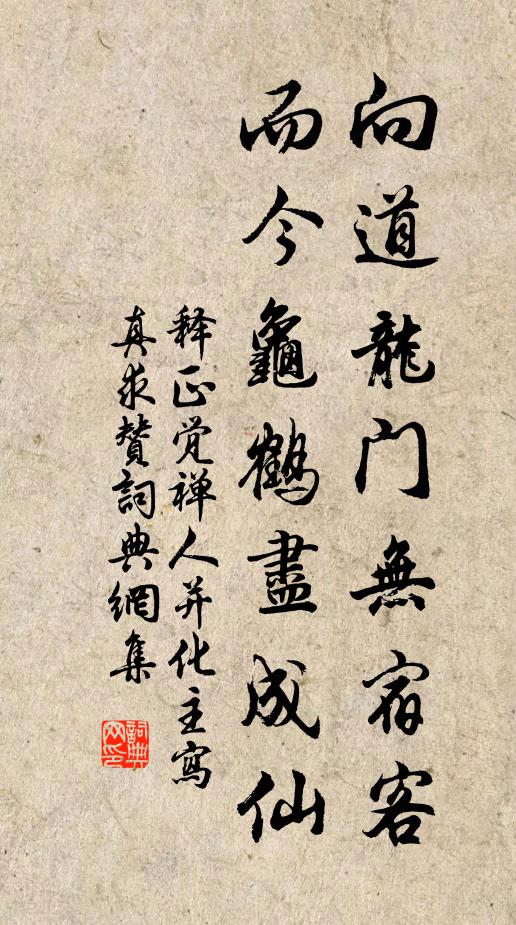 向道龍門無宿客
而今龜鶴盡成仙
释正觉禅人并化主寫
真求贊詞典網集
詞典網印